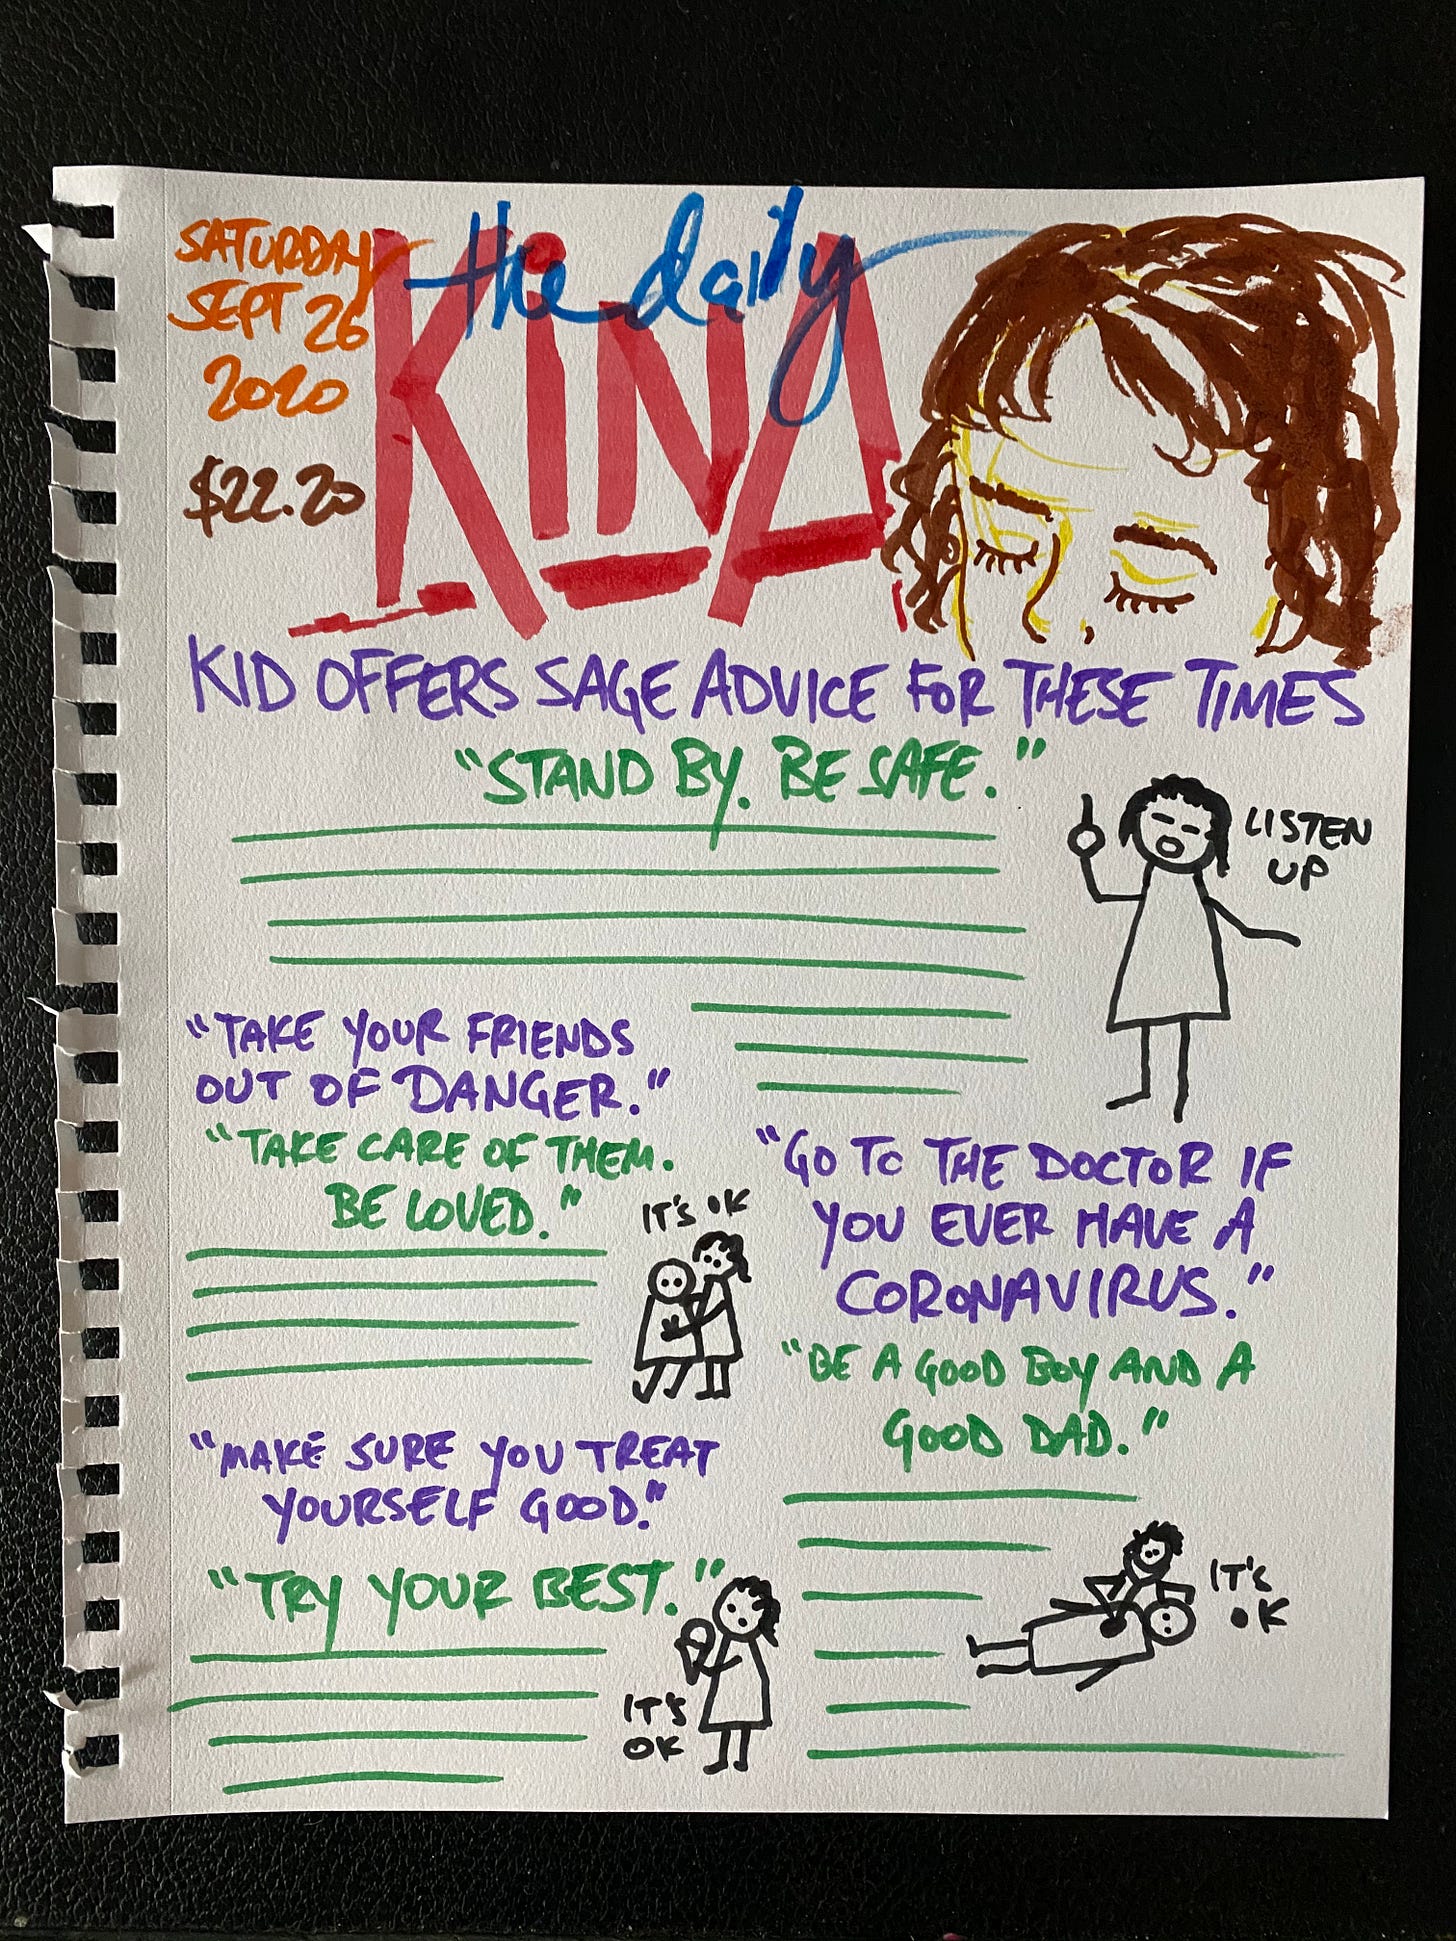 SATURDAY
SEPT 26
2020
$22.20
the daily
KiNA
KID OFFERS SAGE ADVICE FOR THESE TIMES
"STAND BY. BE SAFE."
LISTEN
UP
"TAKE YOUR FRIENDS
OUT OF DANGER."
"TAKE CARE OF THEM.
BE LOVED."
IT'S OK
"GO TO THE DOCTOR IF
YOU EVER HAVE A
CORONAVIRUS."
"BE A GOOD BOY AND A
GOOD DAD."
IT'S
OK
"MAKE SURE YOU TREAT
YOURSELF GOOD."
"TRY YOUR BEST."
IT'S
OK